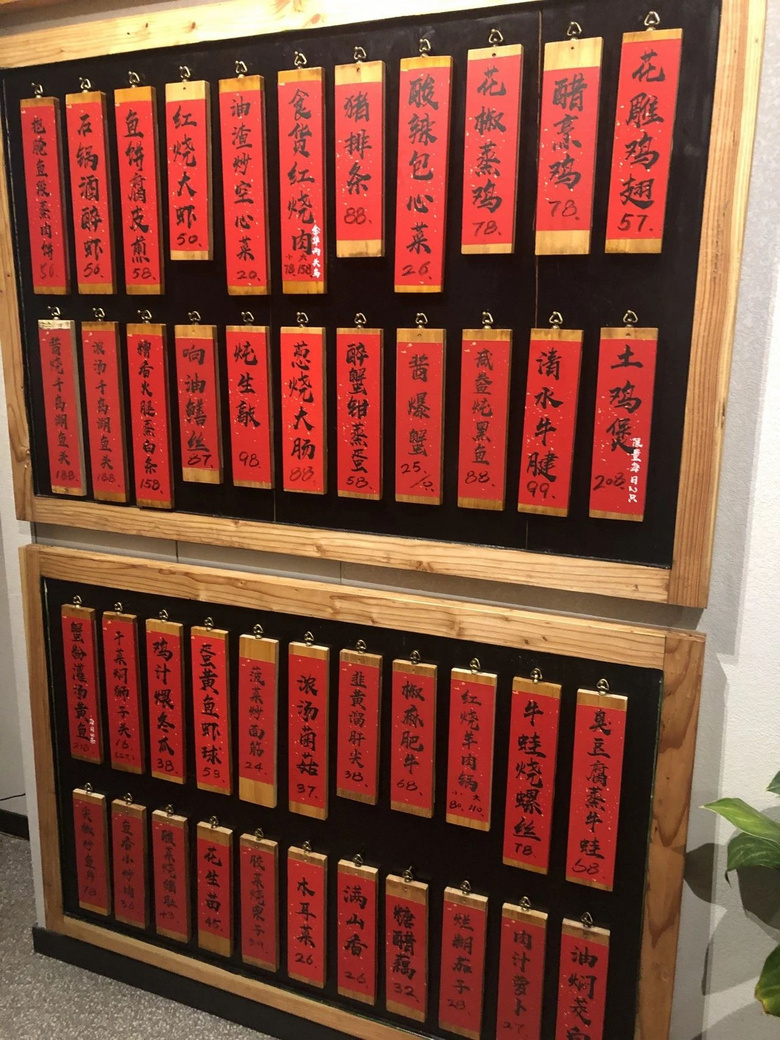 花雕鸡翅 57.
醋烹鸡 78.
花椒蒸鸡 78.
酸辣包心菜 26.
猪排条 88.
食货红烧肉 小 78. 大 158.
油渣炒空心菜 20.
红烧大虾 50.
鱼饼腐皮煎 58.
石锅酒醉虾 56.
土鸡煲 208. 限量每日2只
清水牛腱 99.
咸齑炖黑鱼 88.
酱爆蟹 25./只
醉蟹钳蒸蛋 58.
葱烧大肠 88.
炖生敲 98.
响油鳝丝 87.
糟香火腿蒸白条 158.
浓汤千岛湖鱼头 188.
酱炖千岛湖鱼头 188.
臭豆腐蒸牛蛙 68.
牛蛙烧螺丝 78.
红烧羊肉锅 小 80. 大 110.
椒麻肥牛 68.
韭黄溜肝尖 38.
浓汤菌菇 37.
蔬菜炒面筋 24.
蛋黄鱼虾球 58.
鸡汁煨冬瓜 38.
干菜焖狮子头 18
蟹粉灌汤黄鱼
油焖茭白
肉汁萝卜 27.
烂糊茄子 28.
糖醋藕 32.
满山香 26.
木耳菜 26.
花生苗 45.
豆香小炒肉 36
尖椒炒鱼片 78